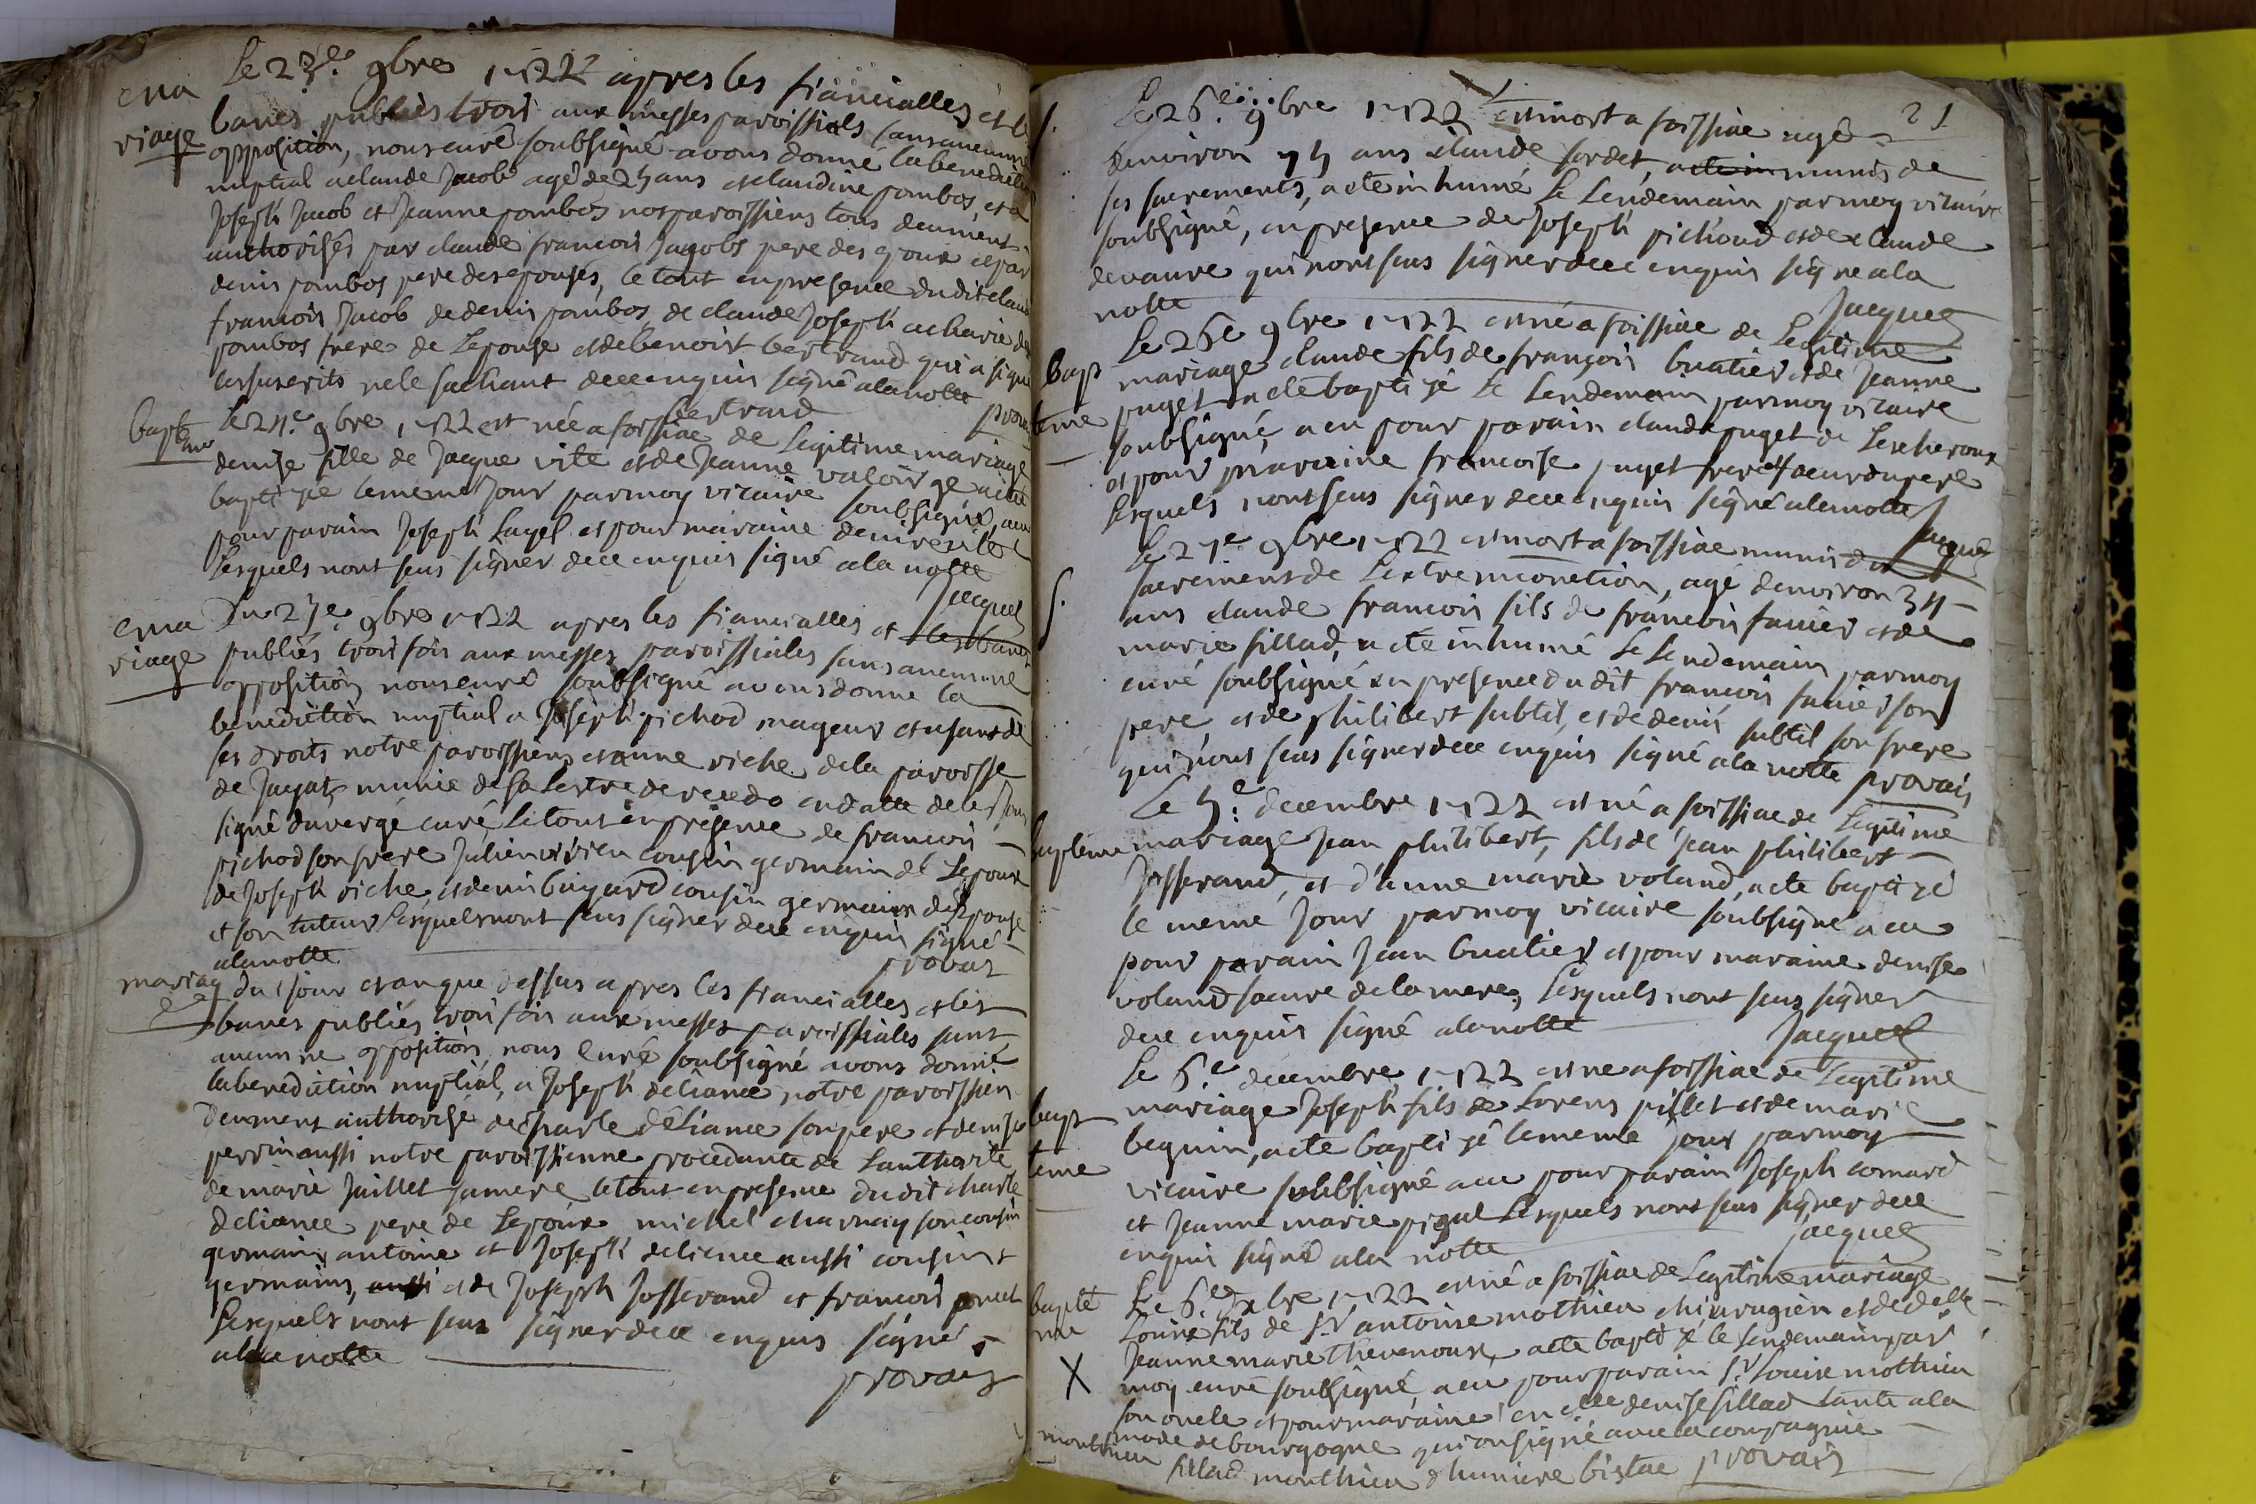 Le 23e 9bre 1722 apres les fiancialles et les
ma
riage
bancs publiés trois aux messes paroissials sans aucune
opposition, nous curé soubsigné avons donné la benediction
nuptial a claude Jacob agé de 25 ans et claudine pombos, et a
Joseph Jacob et Jeanne pombos nos paroissiens tous deument
authorisés par claude francois Jacob pere des epoux et par
denis pombos pere des epouses, le tout en presence dudit claude
francois Jacob de denis pombos, de claude Joseph acharie de
pombos frere de Lepouse et de benoist bertrand qui a signé
les suscrits ne le sachant de ce enquis signé a la notte
bertrand provais
bapteme
Le 24e 9bre 1722 est née a foissiac de Legitime mariage
denise fille de Jacque vite et de Jeanne valoir a été
baptizée le meme Jour par moy vicaire soubsigné, a eu
pour parain Joseph Layel et pour maraine denise vite
Lesquels nont seus signer de ce enquis signé a la notte
Jacquet
ma
riage
Du 25e 9bre 1722 apres les fiancialles et les bancs
publiés trois fois aux messes paroissiales sans aucune
opposition nous curé soubsigné avons donné la
benediction nuptial a Joseph pichod mageur et usant de
ses droits notre paroissien et anne riche de la paroisse
de Jayat munie de sa Lettre de recedo en datte de le
signé duvergé curé Le tout en présence de francois
pichod son frere Julien vivien cousin germain de Lepoux
de Joseph riche, et denis buyard cousin germain de Lepouse
et son tuteur Lesquels nont seus signer de ce enquis signé
a la notte
provais
mariage
du jour et an que dessus apres les fiancialles et les
bancs publiés trois fois aux messes paroissiales sans
aucune opposition, nous Curé soubsigné avons donné
la benediction nuptial, a Joseph deliance notre paroissien
deument authorisé de charle deliance son pere et denise
perrin aussi notre paroissienne procedante de Lauthorité
de marie Juillet sa mere le tout en presence dudit charle
deliance pere de Lepoux michel charnay son cousin
germain, antoine et Joseph deliance aussi cousins
germains, aussi et de Joseph Josserand et francois
Lesquels nont seus signer de ce enquis signé
a la notte
provais
21
S.
Le 26e 9bre 1722 est mort a foissiac agé
denviron 75 ans claude sordet, a eté in munis de
ses sacrements, a eté inhumé Le Lendemain par moy vicaire
soubsigné, en presence de Joseph pichoud et de claude
devaure qui nont seus signer de ce enquis signe a la
notte
Jacquet
Bap
teme
Le 26e 9bre 1722 est né a foissiac de Legitime
mariage claude fils de françois buatier et de Jeanne
puget a eté baptizé Le Lendemain par moy vicaire
soubsigné, a eu pour parain claude puget de Lescheroux
et pour maraine francoise puget frere et soeur du pere
Lesquels nont seus signer de ce enquis signé a la notte
Jacquet
S.
Le 27e 9bre 1722 est mort a foissiac munis du
sacrement de Lextremeonction, agé denviron 34
ans claude francois fils de francois favier et de
marie fillad, a eté inhumé Le Lendemain par moy
curé soubsigné en presence dudit francois favier son
pere, et de philibert subtil, et de denis subtil son frere
qui nont seus signer de ce enquis signé a la notte provais
bapteme
Le 5e decembre 1722 est né a foissiac de Legitime
mariage Jean philibert, fils de Jean philibert
Josserand, et d'anne marie voland, a eté baptizé
le meme Jour par moy vicaire soubsigné a eu
pour parain Jean buatier et pour maraine denise
voland soeure de la mere, Lesquels nont seus signer
de ce enquis signé a la notte
Jacquet
bapt
teme
Le 6e decembre 1722 est né a foissiac de Legitime
mariage Joseph fils de Lorens pillet et de marie
beguin, a eté baptizé le meme jour par moy
vicaire soubsigné a eu pour parain Joseph comard
et Jeanne marie pigut Lesquels nont seus signer de ce
enquis signé a la notte
Jacquet
bapte
me
Le 6e Xbre 1722 est né a foissiac de Legitime mariage
Louis fils de Sr antoine mothieu chirurgien et de delle
Jeanne marie Thevenoux, a eté baptizé le Lendemain par
X
moy curé soubsigné, a eu pour parain Sr Louis mothieu
son oncle et pour maraine delle denise fillad tante a la
mode de bourgogne qui ont signé avec la compagnie
monthieu
fillad monthieu provais